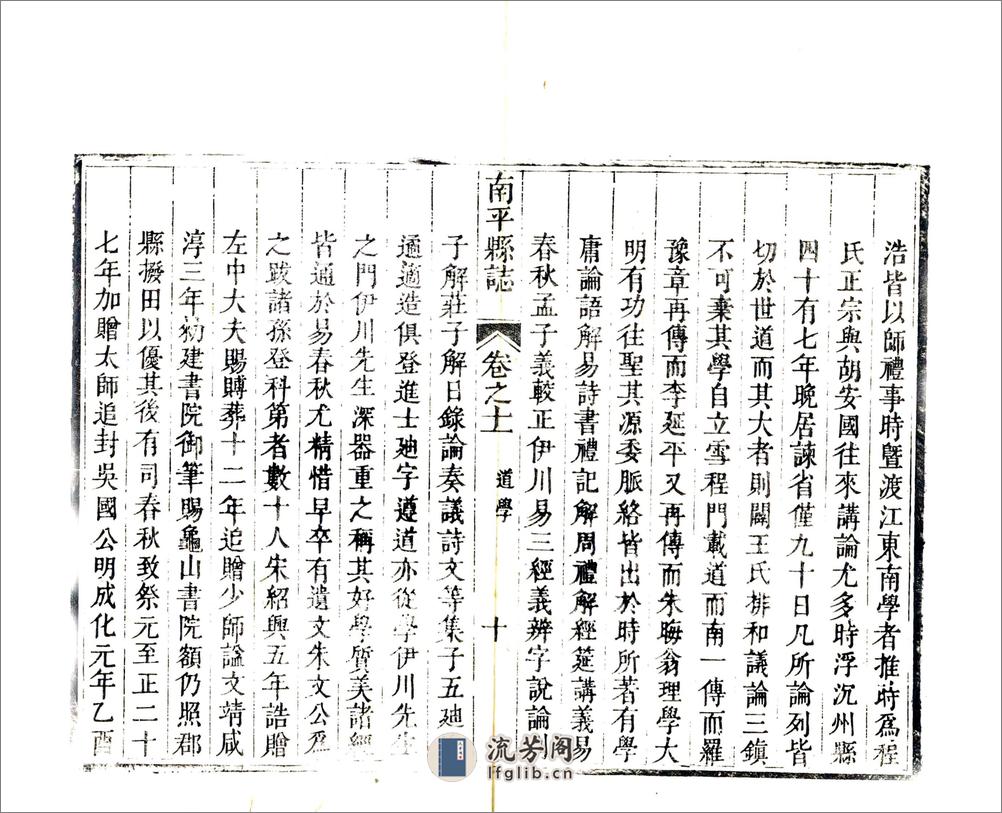 浩皆以師禮事時暨渡江東南學者推時爲程
氏正宗與胡安國往來講論尤多時浮沉州縣
四十有七年晚居諫省僅九十日凡所論列皆
切於世道而其大者則闢王氏排和議論三鎮
不可棄其學自立雪程門載道而南一傳而羅
豫章再傳而李延平又再傳而朱晦翁理學大
明有功往聖其源委脈絡皆出於時所著有學
庸論語解易詩書禮記解周禮解經筵講義易
春秋孟子義較正伊川易三經義辨字說論
南平縣誌 卷之十一 道學 十
子解莊子解日錄論奏議詩文等集子五廸
適造俱登進士廸字遵道亦從學伊川先生
之門伊川先生深器重之稱其好學質美諸經
皆通於易春秋尤精惜早卒有遺文朱文公爲
之跋諸孫登科第者數十人宋紹興五年誥贈
左中大夫賜賻葬十二年追贈少師謚文靖咸
淳三年勑建書院御筆賜龜山書院額仍照郡
縣撥田以優其後有司春秋致祭元至正二十
七年加贈太師追封吳國公明成化元年乙酉
流芳阁
lfglib.cn